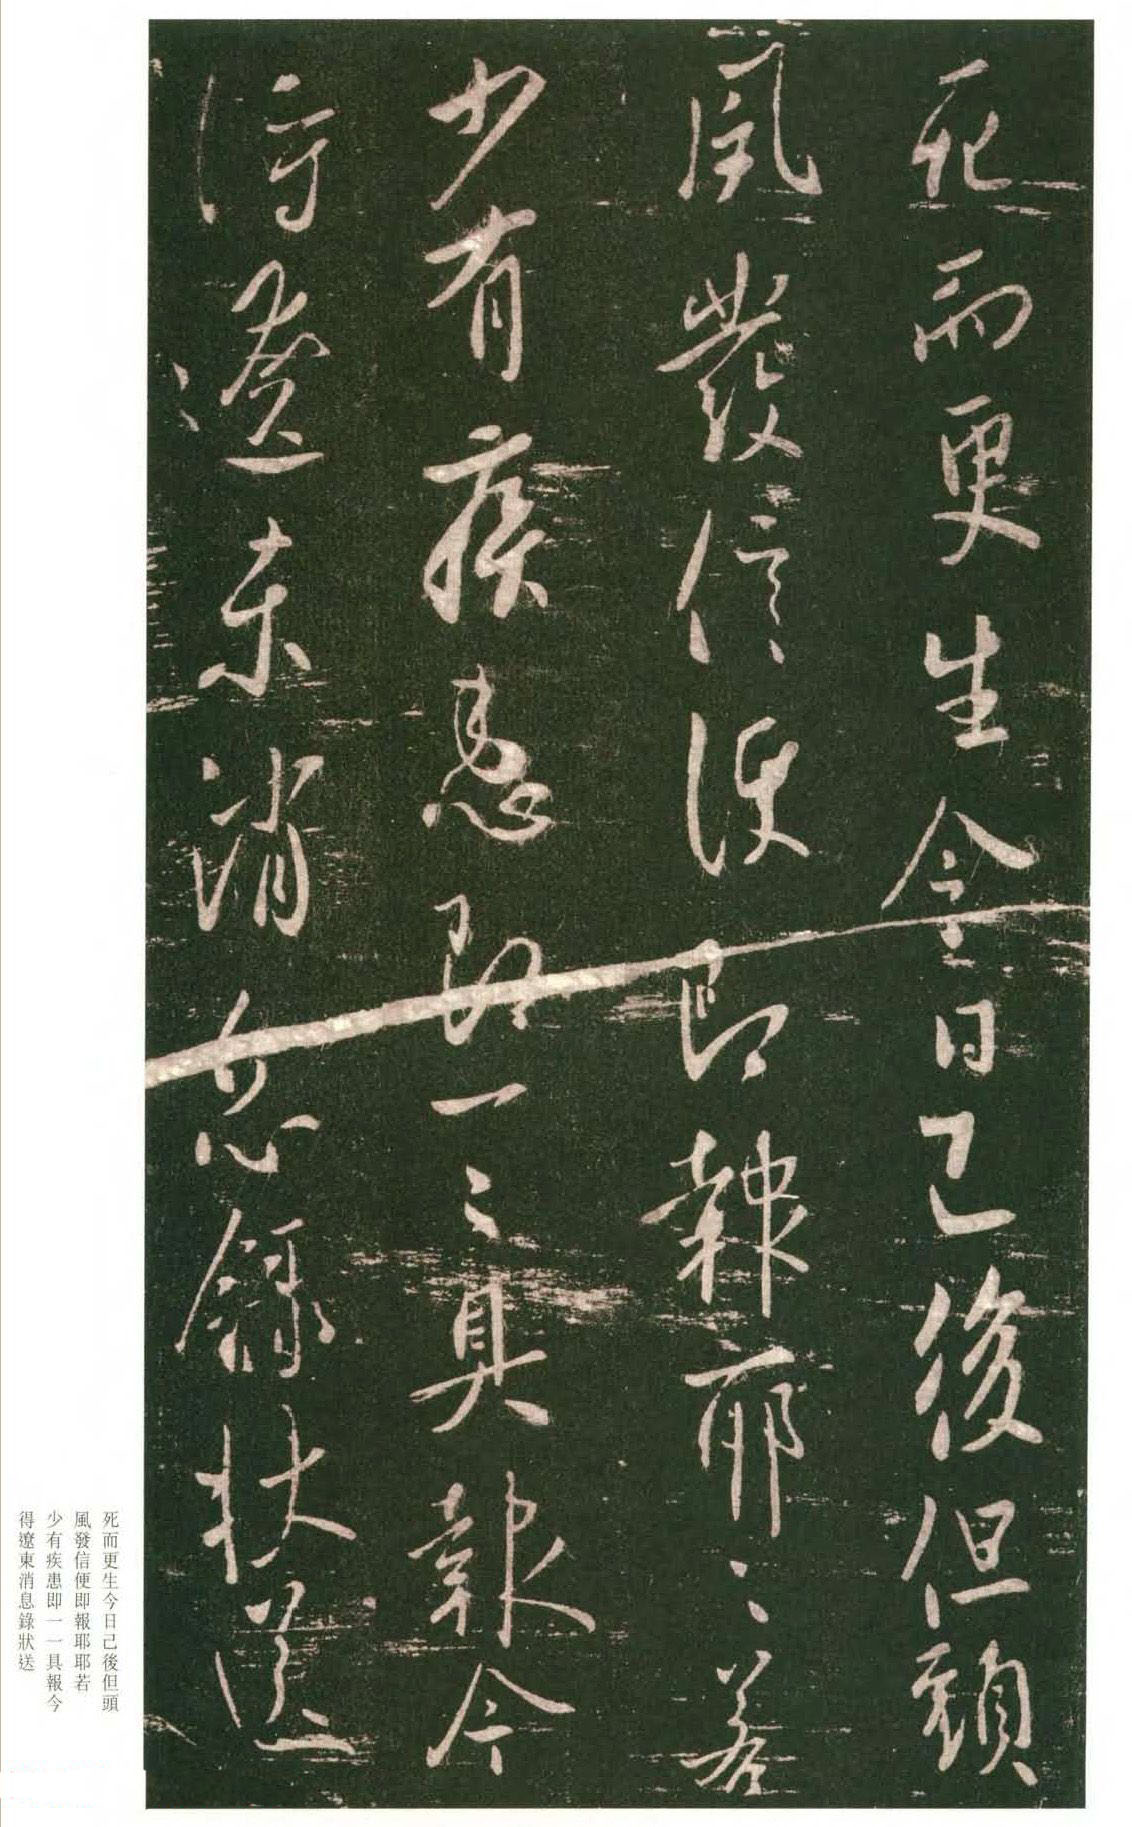 死而更生今日已後但頭
風發信便即報耶〻若
少有疾患即一〻具報今
得遼東消息錄狀送
死而更生今日己後但頭
風發信便即報耶耶若
少有疾患即一一具報今
得遼東消息錄狀送